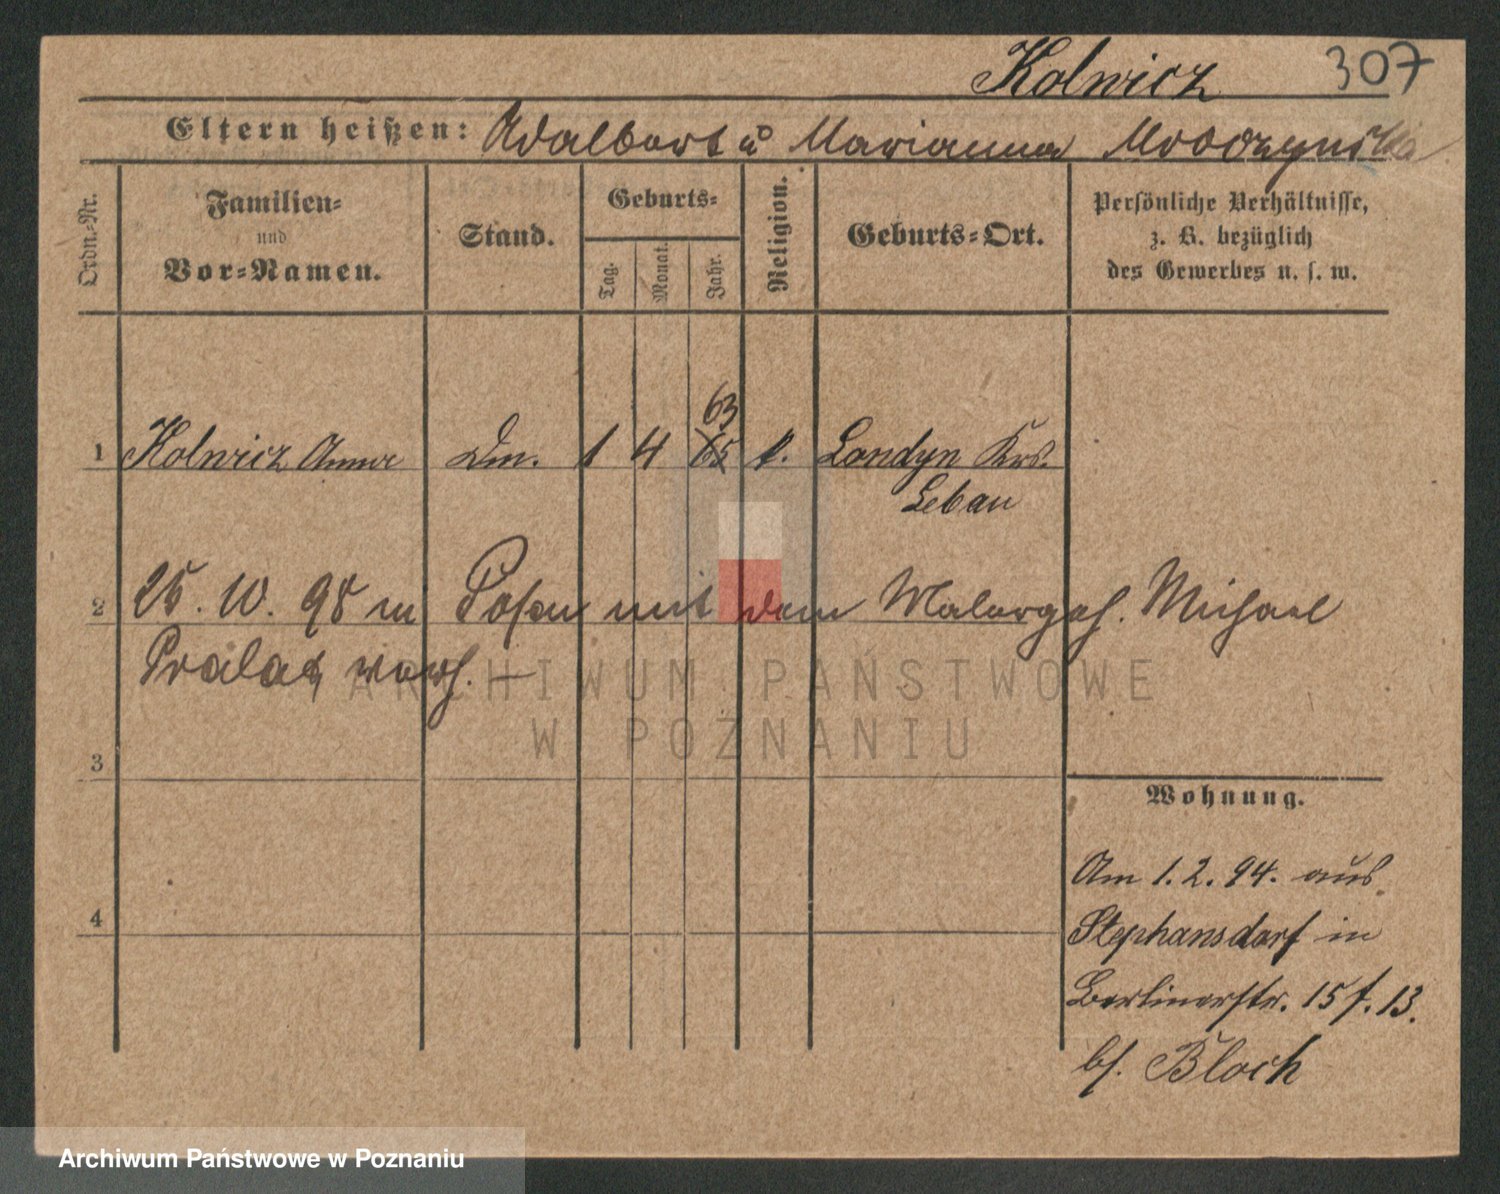 Kolwicz 307
Eltern heißen: Adalbert u Marianna Mroczynska
Ordn.-Nr.
Familien-
und
Vor-Namen.
Stand.
Geburts-
Tag.
Monat.
Jahr.
Religion.
Geburts-Ort.
Persönliche Verhältnisse,
z. B. bezüglich
des Gewerbes u. s. w.
63
1 Kolwicz Anna Dm. 1 4 65 k. Londyn Krs.
Lebau
2 25. 10. 98 in Posen mit dem Malergeh. Michael
Pralat verh. —
ARCHIWUM PAŃSTWOWE
W POZNANIU
3
Wohnung.
Am 1. 2. 94. aus
4
Stephansdorf in
Berlinerstr. 15 f. 13.
bei Bloch
Archiwum Państwowe w Poznaniu